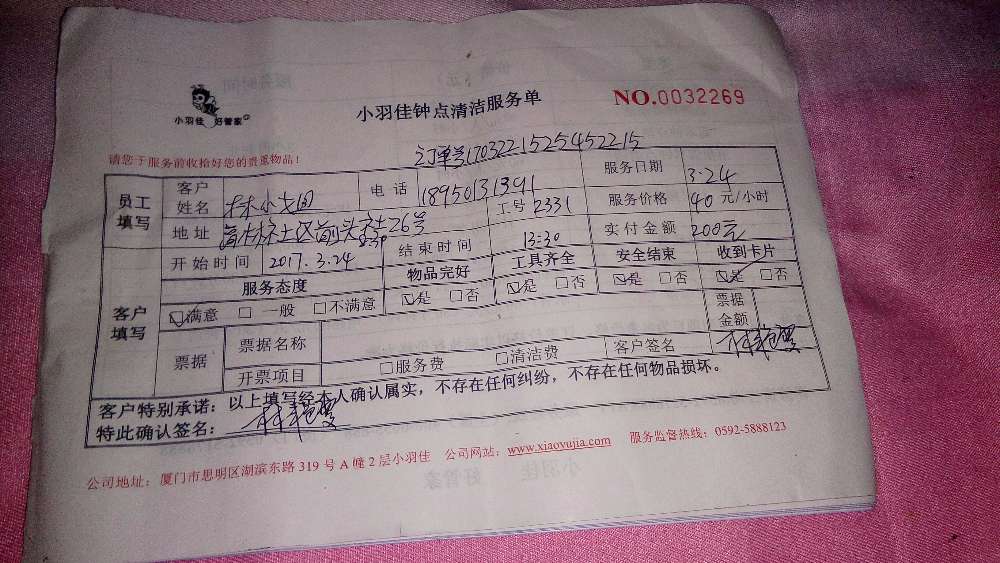 小羽佳 好管家
小羽佳钟点清洁服务单
NO.0032269
订单号1703221525452215
请您于服务前收拾好您的贵重物品！
员工填写 客户姓名 林小 电话 18950131391 服务日期 3.24
地址 社区前头社26号 工号 2331 服务价格 40元/小时
开始时间 2017.3.24 8:30 结束时间 13:30 实付金额 200元
客户填写 服务态度 物品完好 工具齐全 安全结束 收到卡片
☑满意 □一般 □不满意 ☑是 □否 ☑是 □否 ☑是 □否 ☑是 □否
票据 票据名称 票据金额
开票项目 □服务费 □清洁费 客户签名 林
客户特别承诺：以上填写经本人确认属实，不存在任何纠纷，不存在任何物品损坏。
特此确认签名： 林
公司地址：厦门市思明区湖滨东路319号A幢2层小羽佳 公司网站：www.xiaoyujia.com 服务监督热线：0592-5888123